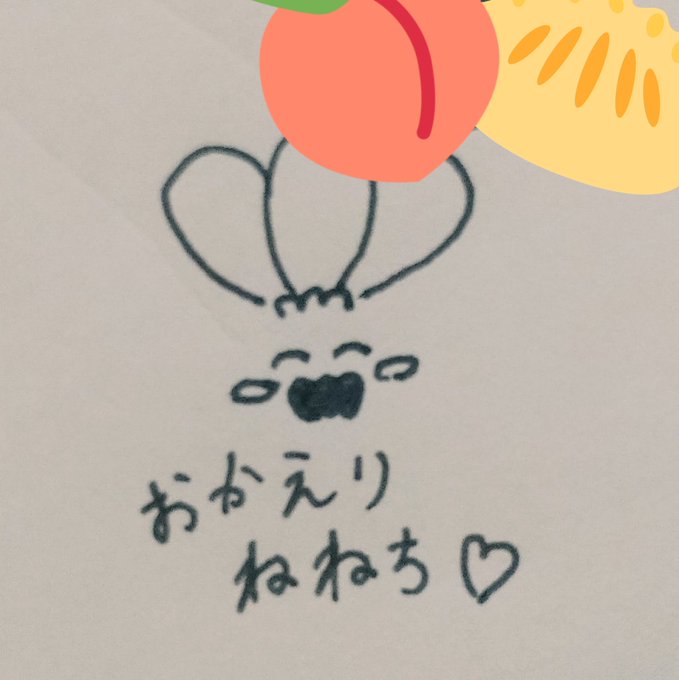 おかえり
ねねち♡